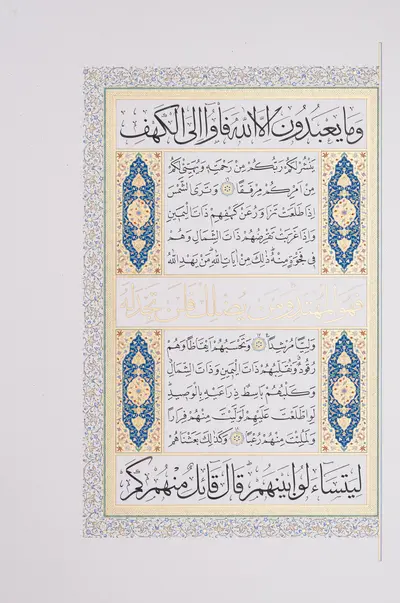 وَمَا يَعْبُدُونَ إِلَّا اللَّهَ فَأْوُوا إِلَى الْكَهْفِ
يَنْشُرْ لَكُمْ رَبُّكُمْ مِنْ رَحْمَتِهِ وَيُهَيِّئْ لَكُمْ
مِنْ أَمْرِكُمْ مِرْفَقًا ۝ وَتَرَى الشَّمْسَ
إِذَا طَلَعَتْ تَزَاوَرُ عَنْ كَهْفِهِمْ ذَاتَ الْيَمِينِ
وَإِذَا غَرَبَتْ تَقْرِضُهُمْ ذَاتَ الشِّمَالِ وَهُمْ
فِي فَجْوَةٍ مِنْهُ ذَٰلِكَ مِنْ آيَاتِ اللَّهِ مَنْ يَهْدِ اللَّهُ
فَهُوَ الْمُهْتَدِ وَمَنْ يُضْلِلْ فَلَنْ تَجِدَ لَهُ
وَلِيًّا مُرْشِدًا ۝ وَتَحْسَبُهُمْ أَيْقَاظًا وَهُمْ
رُقُودٌ وَنُقَلِّبُهُمْ ذَاتَ الْيَمِينِ وَذَاتَ الشِّمَالِ
وَكَلْبُهُمْ بَاسِطٌ ذِرَاعَيْهِ بِالْوَصِيدِ
لَوِ اطَّلَعْتَ عَلَيْهِمْ لَوَلَّيْتَ مِنْهُمْ فِرَارًا
وَلَمُلِئْتَ مِنْهُمْ رُعْبًا ۝ وَكَذَٰلِكَ بَعَثْنَاهُمْ
لِيَتَسَاءَلُوا بَيْنَهُمْ قَالَ قَائِلٌ مِنْهُمْ كَمْ